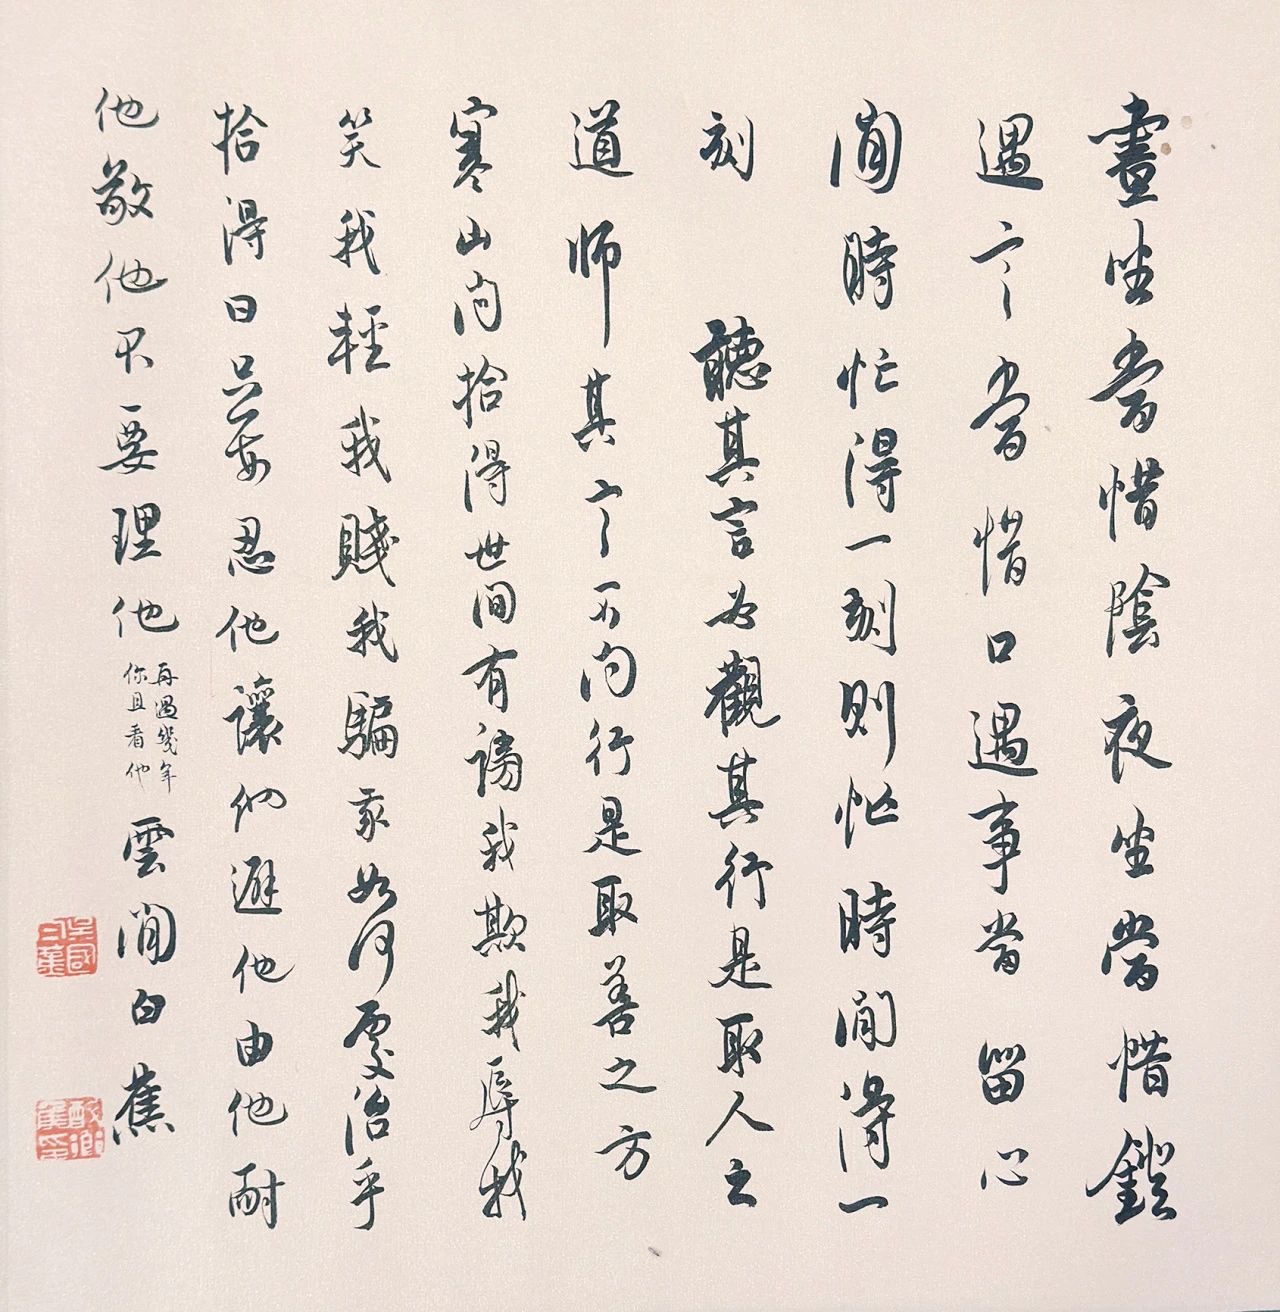 晝坐當惜陰夜坐當惜鐙
遇言當惜口遇事當留心
閒時忙得一刻則忙時閒得一
刻　聽其言必觀其行是取人之
道師其言不問行是取善之方
寒山问拾得世間有謗我欺我辱我
笑我輕我賤我騙我如何處治乎
拾得曰只要忍他讓他避他由他耐
他敬他不要理他
再過幾年
你且看他
雲間白蕉